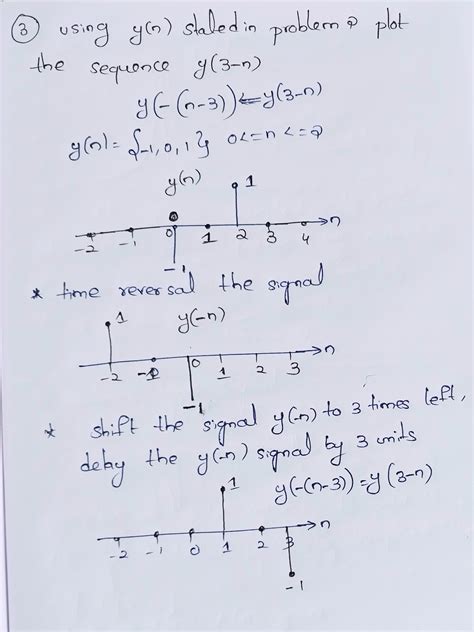 ③ using y(n) stated in problem 2 plot
the sequence y(3-n)
y(-(n-3)) <= y(3-n)
y(n) = {-1, 0, 1} 0<=n<=2
y(n) 1
-2 -1 0 1 2 3 4 →n
-1
* time reversal the signal
1 y(-n)
-2 -1 0 1 2 3 →n
-1
* shift the signal y(-n) to 3 times left,
delay the y(-n) signal by 3 units
1 y(-(n-3)) = y(3-n)
-2 -1 0 1 2 3 →n
-1